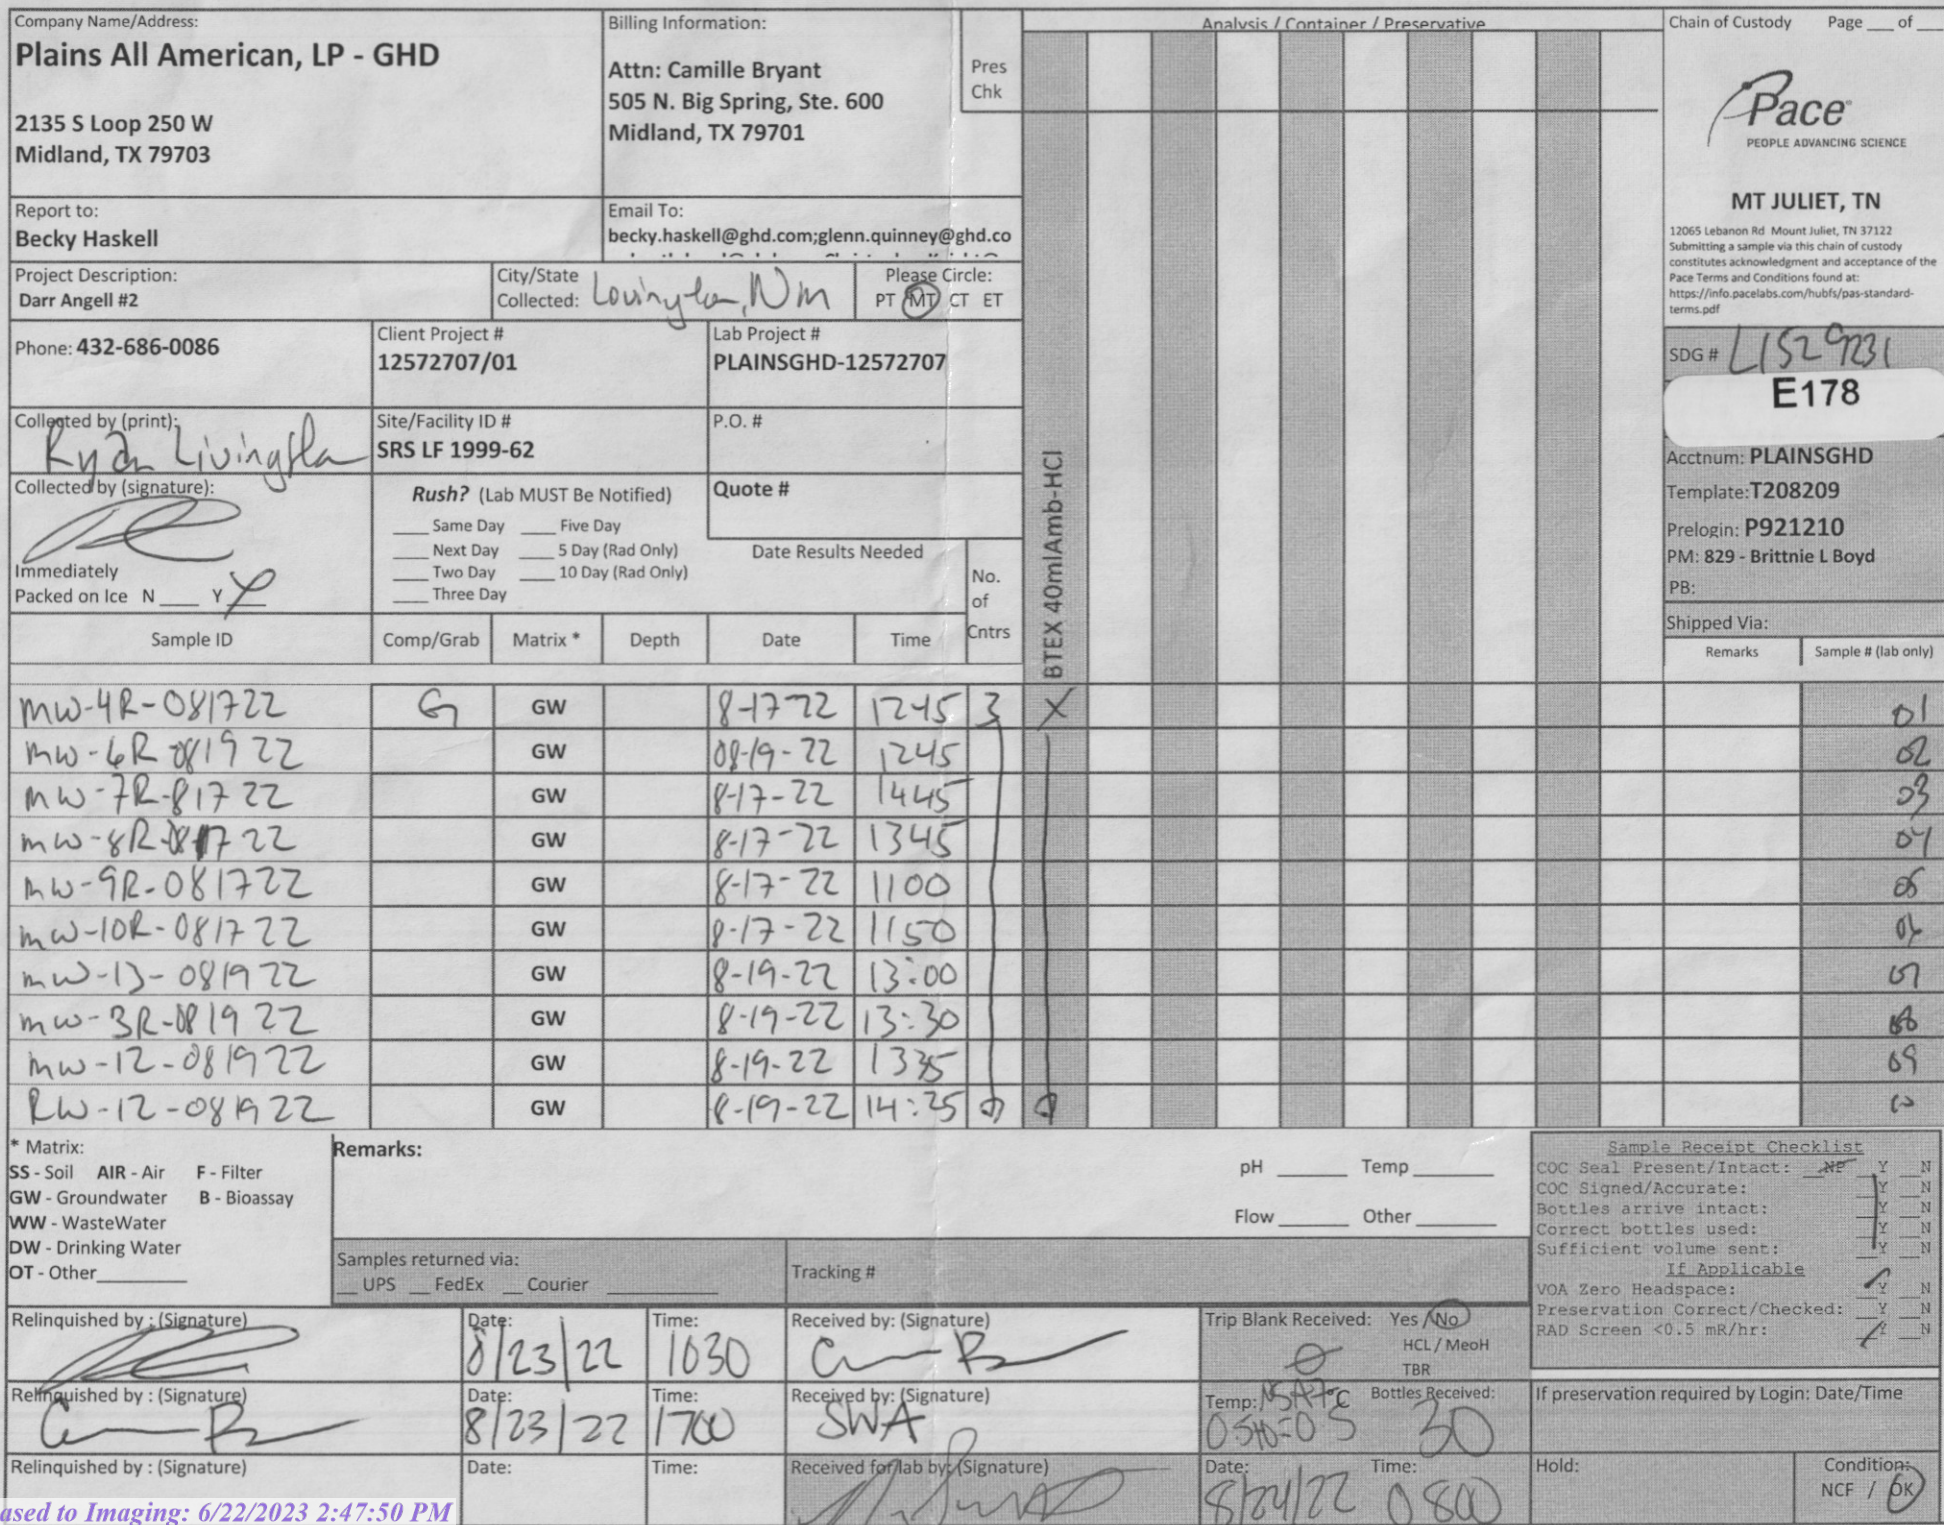 Company Name/Address:
Plains All American, LP - GHD
2135 S Loop 250 W
Midland, TX 79703
Billing Information:
Attn: Camille Bryant
505 N. Big Spring, Ste. 600
Midland, TX 79701
Pres
Chk
Analysis / Container / Preservative
Chain of Custody Page ___ of ___
Pace
PEOPLE ADVANCING SCIENCE
MT JULIET, TN
12065 Lebanon Rd Mount Juliet, TN 37122
Submitting a sample via this chain of custody
constitutes acknowledgment and acceptance of the
Pace Terms and Conditions found at:
https://info.pacelabs.com/hubfs/pas-standard-
terms.pdf
Report to:
Becky Haskell
Email To:
becky.haskell@ghd.com;glenn.quinney@ghd.co
Project Description:
Darr Angell #2
City/State
Collected: Lovington, NM
Please Circle:
PT MT CT ET
Phone: 432-686-0086
Client Project #
12572707/01
Lab Project #
PLAINSGHD-12572707
SDG # L1529231
E178
Collected by (print):
Ryan Livingston
Site/Facility ID #
SRS LF 1999-62
P.O. #
Acctnum: PLAINSGHD
Template: T208209
Prelogin: P921210
PM: 829 - Brittnie L Boyd
PB:
Shipped Via:
Collected by (signature):
Immediately
Packed on Ice N ___ Y ___
Rush? (Lab MUST Be Notified)
___ Same Day ___ Five Day
___ Next Day ___ 5 Day (Rad Only)
___ Two Day ___ 10 Day (Rad Only)
___ Three Day
Quote #
Date Results Needed
No.
of
Cntrs
BTEX 40mlAmb-HCl
Sample ID Comp/Grab Matrix * Depth Date Time Remarks Sample # (lab only)
MW-4R-081722 G GW 8-17-22 1245 3 X 01
MW-6R-081922 GW 08-19-22 1245 02
MW-7R-81722 GW 8-17-22 1445 03
MW-8R-081722 GW 8-17-22 1345 04
MW-9R-081722 GW 8-17-22 1100 05
MW-10R-081722 GW 8-17-22 1150 06
MW-13-081922 GW 8-19-22 13:00 07
MW-3R-081922 GW 8-19-22 13:30 08
MW-12-081922 GW 8-19-22 1335 09
RW-12-081922 GW 8-19-22 14:25 10
* Matrix:
SS - Soil AIR - Air F - Filter
GW - Groundwater B - Bioassay
WW - WasteWater
DW - Drinking Water
OT - Other___
Remarks:
pH ___ Temp ___
Flow ___ Other ___
Samples returned via:
__ UPS __ FedEx __ Courier ___
Tracking #
Sample Receipt Checklist
COC Seal Present/Intact: __NP __Y __N
COC Signed/Accurate: __Y __N
Bottles arrive intact: __Y __N
Correct bottles used: __Y __N
Sufficient volume sent: __Y __N
If Applicable
VOA Zero Headspace: __Y __N
Preservation Correct/Checked: __Y __N
RAD Screen <0.5 mR/hr: __Y __N
Relinquished by : (Signature)
Date: 8/23/22
Time: 1030
Received by: (Signature)
Trip Blank Received: Yes / No
HCL / MeoH
TBR
Relinquished by : (Signature)
Date: 8/23/22
Time: 1700
Received by: (Signature)
SWA
Temp: °C
0.5+0=0.5
Bottles Received:
30
If preservation required by Login: Date/Time
Relinquished by : (Signature)
Date:
Time:
Received for lab by: (Signature)
Date: 8/24/22
Time: 0800
Hold:
Condition:
NCF / OK
ased to Imaging: 6/22/2023 2:47:50 PM